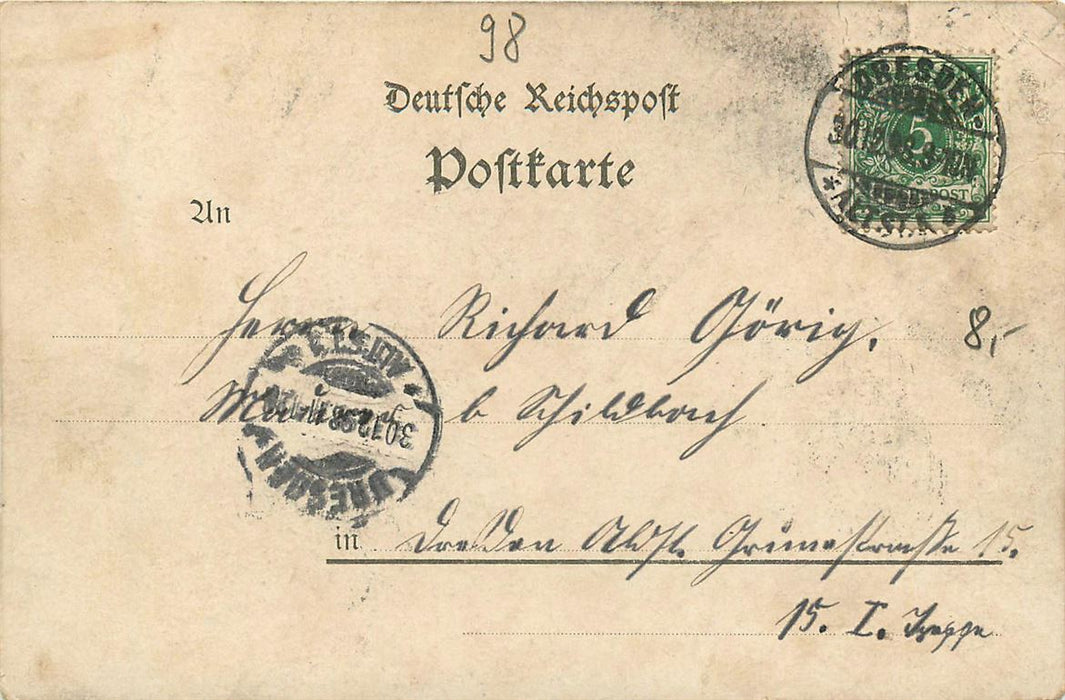 98
Deutsche Reichspost
Postkarte
DRESDEN
5
An
Herrn Richard Görig.
8,-
b Schildbach
30.12.98.11-12
DRESDEN
in Dresden Altst. Grunaerstrasse 15.
15. I. Treppe